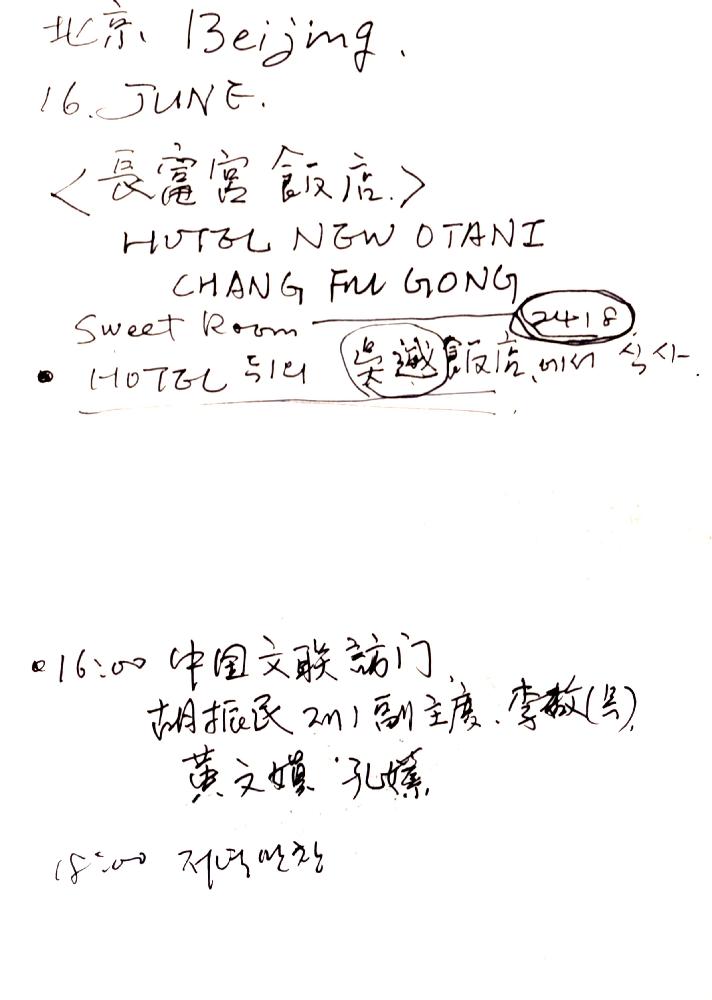 北京. Beijing.
16. JUNE.
<長富宮 飯店.>
HOTEL NEW OTANI
CHANG FU GONG
Sweet Room 2418
• HOTEL 뒤의 吳越飯店.에서 식사.
• 16:00 中国文联 訪门.
胡振民 제1副主度. 李敎(吳),
黃文 孔
18:00 저녁만찬